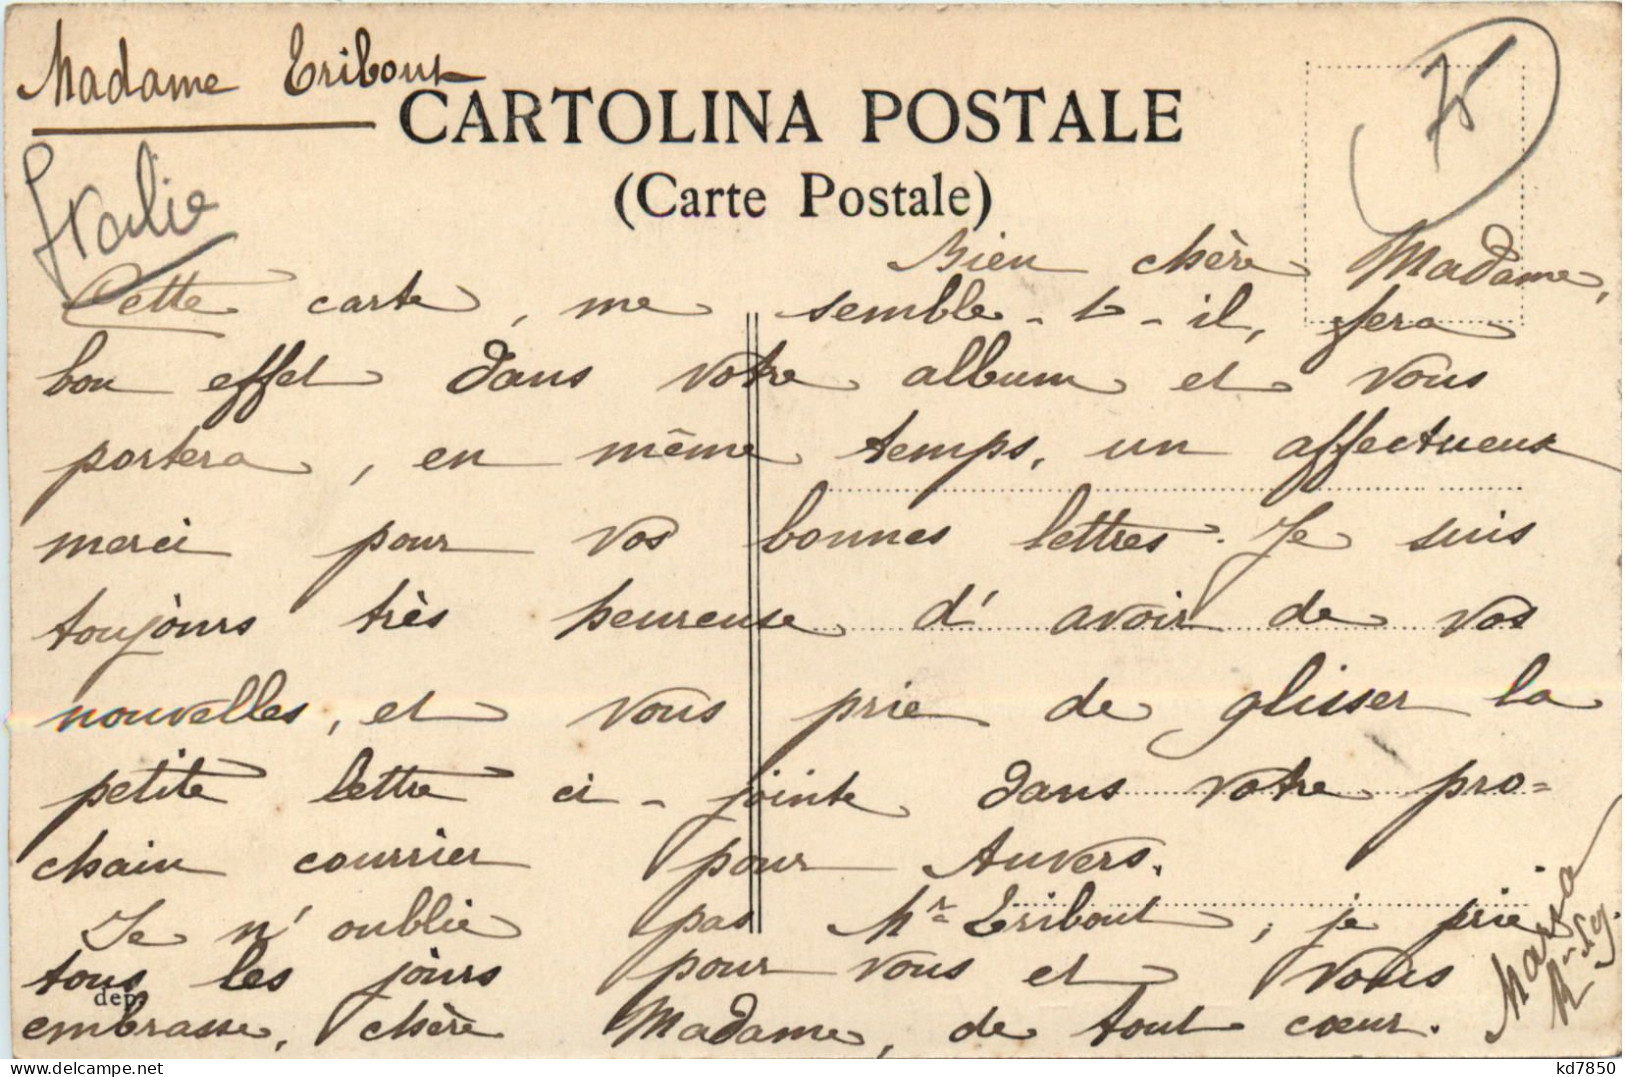 Madame Eribout
CARTOLINA POSTALE
(Carte Postale)
75
Italie
Bien chère Madame,
Cette carte, me semble-t-il, fera
bon effet dans votre album et vous
portera, en même temps, un affectueux
merci pour vos bonnes lettres. Je suis
toujours très heureuse d'avoir de vos
nouvelles, et vous prie de glisser la
petite lettre ci-jointe dans votre pro=
chain courrier pour Anvers.
Je n'oublie pas Mr Eribout, je prie
tous les jours pour vous et vous
dep.
embrasse, chère Madame, de tout cœur.
Marsa
kd7850